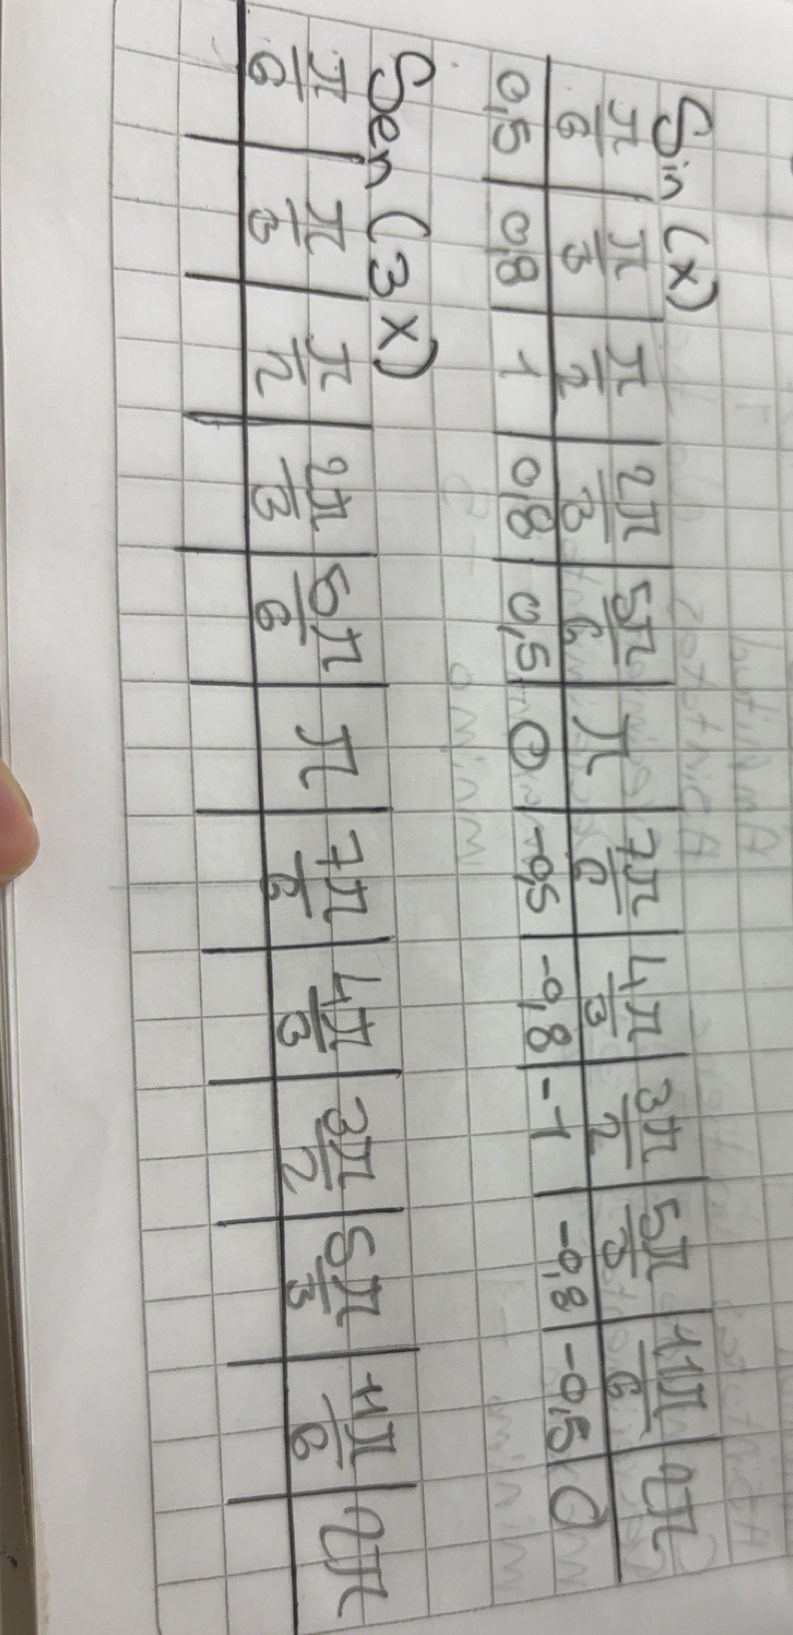 Sin (x)
π/6 π/3 π/2 2π/3 5π/6 π 7π/6 4π/3 3π/2 5π/3 11π/6 2π
0,5 0,8 1 0,8 0,5 0 -0,5 -0,8 -1 -0,8 -0,5 0
Sen (3x)
π/6 π/3 π/2 2π/3 5π/6 π 7π/6 4π/3 3π/2 5π/3 11π/6 2π